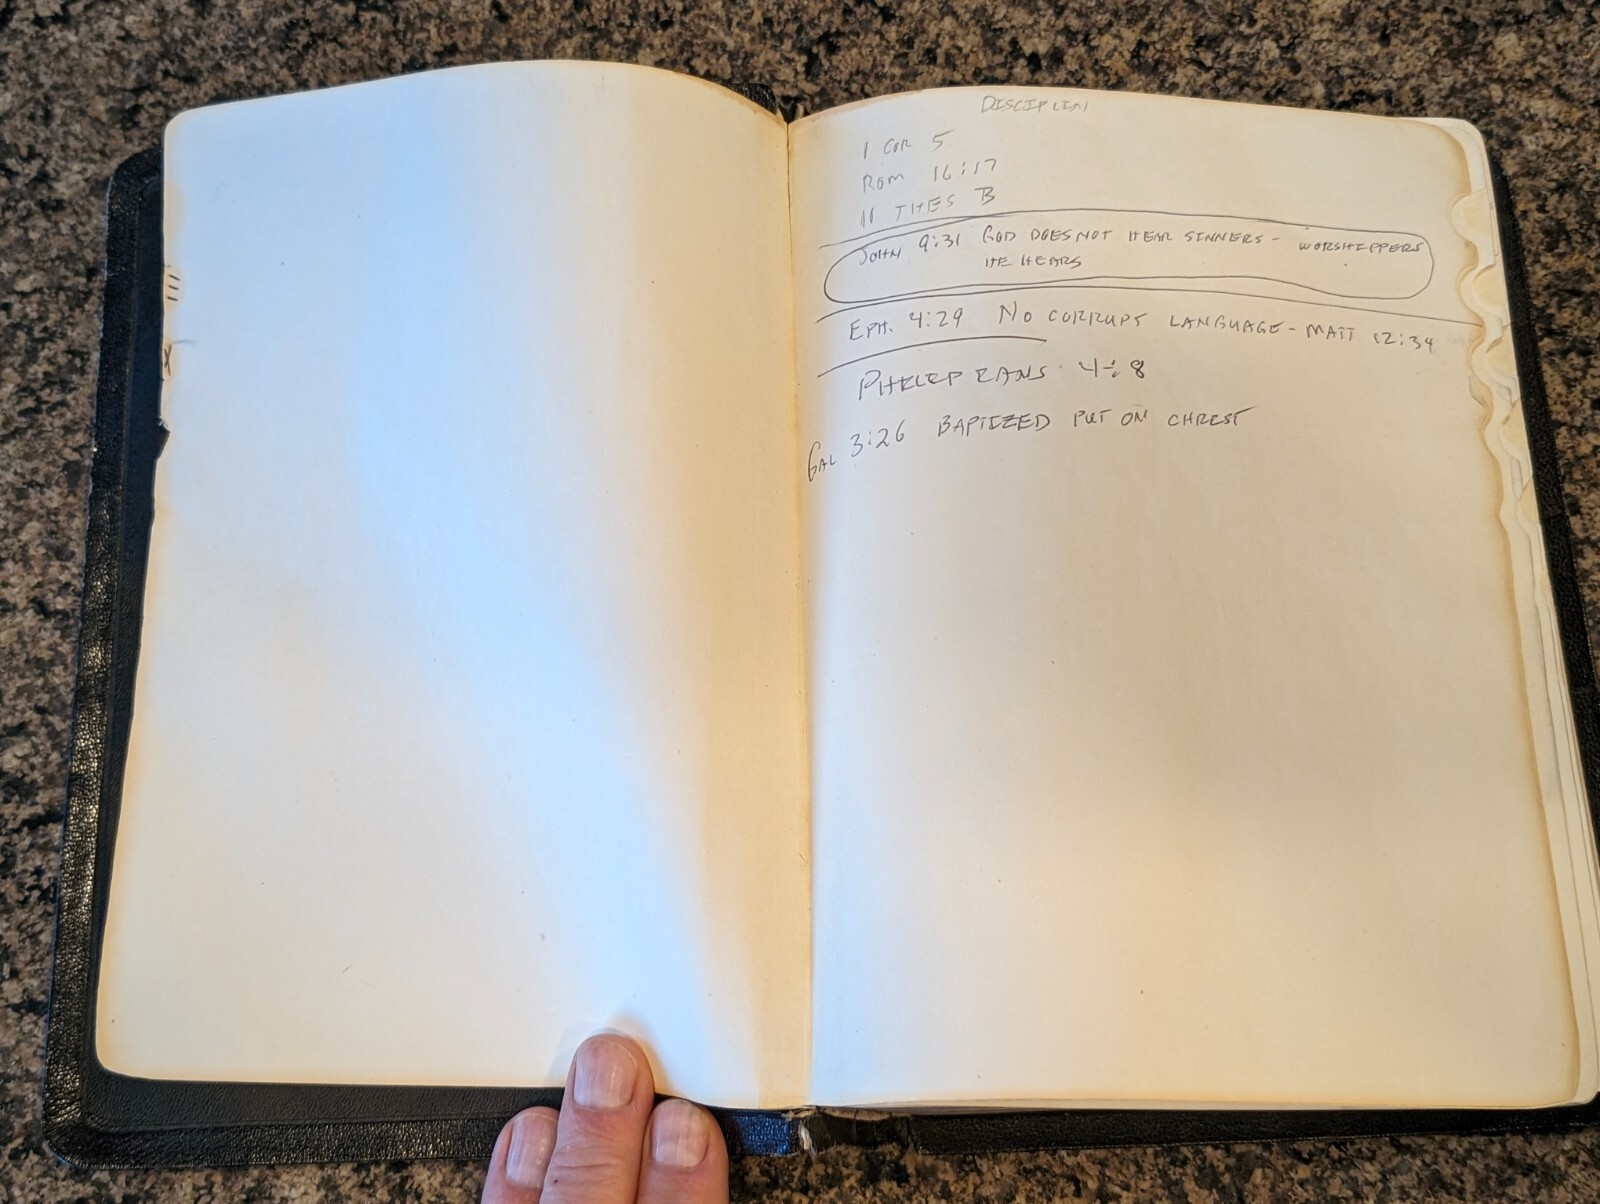 DISCIPLIN
1 COR 5
ROM 16:17
11 THES 3
JOHN 9:31 GOD DOES NOT HEAR SINNERS - WORSHIPPERS
HE HEARS
EPH. 4:29 NO CORRUPT LANGUAGE - MATT 12:34
PHILIPPIANS 4:8
GAL 3:26 BAPTIZED PUT ON CHRIST